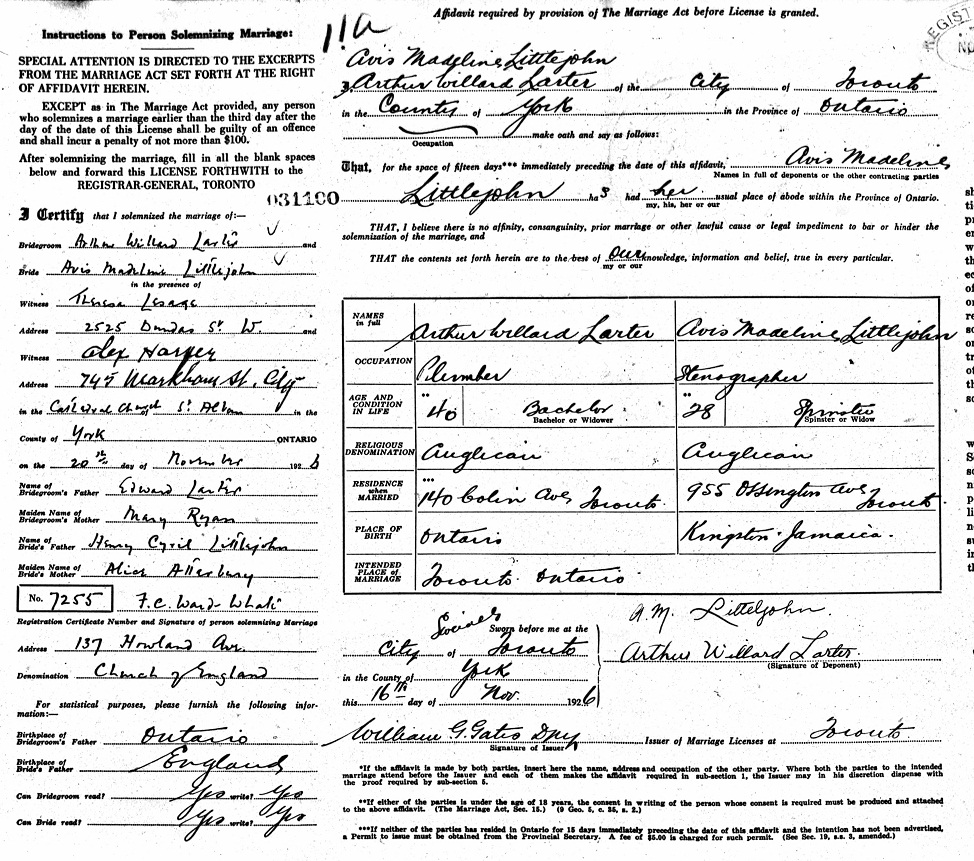 Affidavit required by provision of The Marriage Act before License is granted.
11a
Instructions to Person Solemnizing Marriage:
SPECIAL ATTENTION IS DIRECTED TO THE EXCERPTS
FROM THE MARRIAGE ACT SET FORTH AT THE RIGHT
OF AFFIDAVIT HEREIN.
EXCEPT as in The Marriage Act provided, any person
who solemnizes a marriage earlier than the third day after the
day of the date of this License shall be guilty of an offence
and shall incur a penalty of not more than $100.
After solemnizing the marriage, fill in all the blank spaces
below and forward this LICENSE FORTHWITH to the
REGISTRAR-GENERAL, TORONTO
031100
I Certify that I solemnized the marriage of:—
Bridegroom Arthur Willard Larter and
Bride Avis Madeline Littlejohn
in the presence of
Witness Theresa Lesage
Address 2525 Dundas St W. and
Witness Alex Harper
Address 745 Markham St. City
in the Cathedral Church of St Alban in the
County of York ONTARIO
on the 20th day of November 1926
Name of Bridegroom's Father Edward Larter
Maiden Name of Bridegroom's Mother Mary Ryan
Name of Bride's Father Henry Cyril Littlejohn
Maiden Name of Bride's Mother Alice Atterbury
No. 7255 F.C. Ward-Whate
Registration Certificate Number and Signature of person solemnizing Marriage
Address 137 Howland Ave.
Denomination Church of England
For statistical purposes, please furnish the following infor-
mation:—
Birthplace of Bridegroom's Father Ontario
Birthplace of Bride's Father England
Can Bridegroom read? Yes write? Yes
Can Bride read? Yes write? Yes
REGIST
NO
Avis Madeline Littlejohn
I, Arthur Willard Larter of the City of Toronto
in the County of York in the Province of Ontario
make oath and say as follows:
Occupation
That, for the space of fifteen days*** immediately preceding the date of this affidavit, Avis Madeline
Names in full of deponents or the other contracting parties
Littlejohn has had her usual place of abode within the Province of Ontario.
my, his, her or our
THAT, I believe there is no affinity, consanguinity, prior marriage or other lawful cause or legal impediment to bar or hinder the
solemnization of the marriage, and
THAT the contents set forth herein are to the best of our knowledge, information and belief, true in every particular.
my or our
NAMES in full Arthur Willard Larter Avis Madeline Littlejohn
OCCUPATION Plumber Stenographer
AGE AND CONDITION IN LIFE ** 40 Bachelor Bachelor or Widower ** 28 Spinster Spinster or Widow
RELIGIOUS DENOMINATION Anglican Anglican
RESIDENCE when MARRIED *** 140 Colin Ave Toronto 955 Ossington Ave Toronto
PLACE OF BIRTH Ontario Kingston Jamaica
INTENDED PLACE OF MARRIAGE Toronto Ontario
Sworn before me at the
City of Toronto
in the County of York
this 16th day of Nov. 1926
A.M. Littlejohn.
Arthur Willard Larter
(Signature of Deponent)
William G. Gates Dpy Issuer of Marriage Licenses at Toronto
Signature of Issuer
*If the affidavit is made by both parties, insert here the name, address and occupation of the other party. Where both the parties to the intended
marriage attend before the Issuer and each of them makes the affidavit required in sub-section 1, the Issuer may in his discretion dispense with
the proof required by sub-section 5.
**If either of the parties is under the age of 18 years, the consent in writing of the person whose consent is required must be produced and attached
to the above affidavit. (The Marriage Act, Sec. 15.) (9 Geo. 5, c. 35, s. 2.)
***If neither of the parties has resided in Ontario for 15 days immediately preceding the date of this affidavit and the intention has not been advertised,
a Permit to issue must be obtained from the Provincial Secretary. A fee of $5.00 is charged for such permit. (See Sec. 19, s.s. 3, amended.)